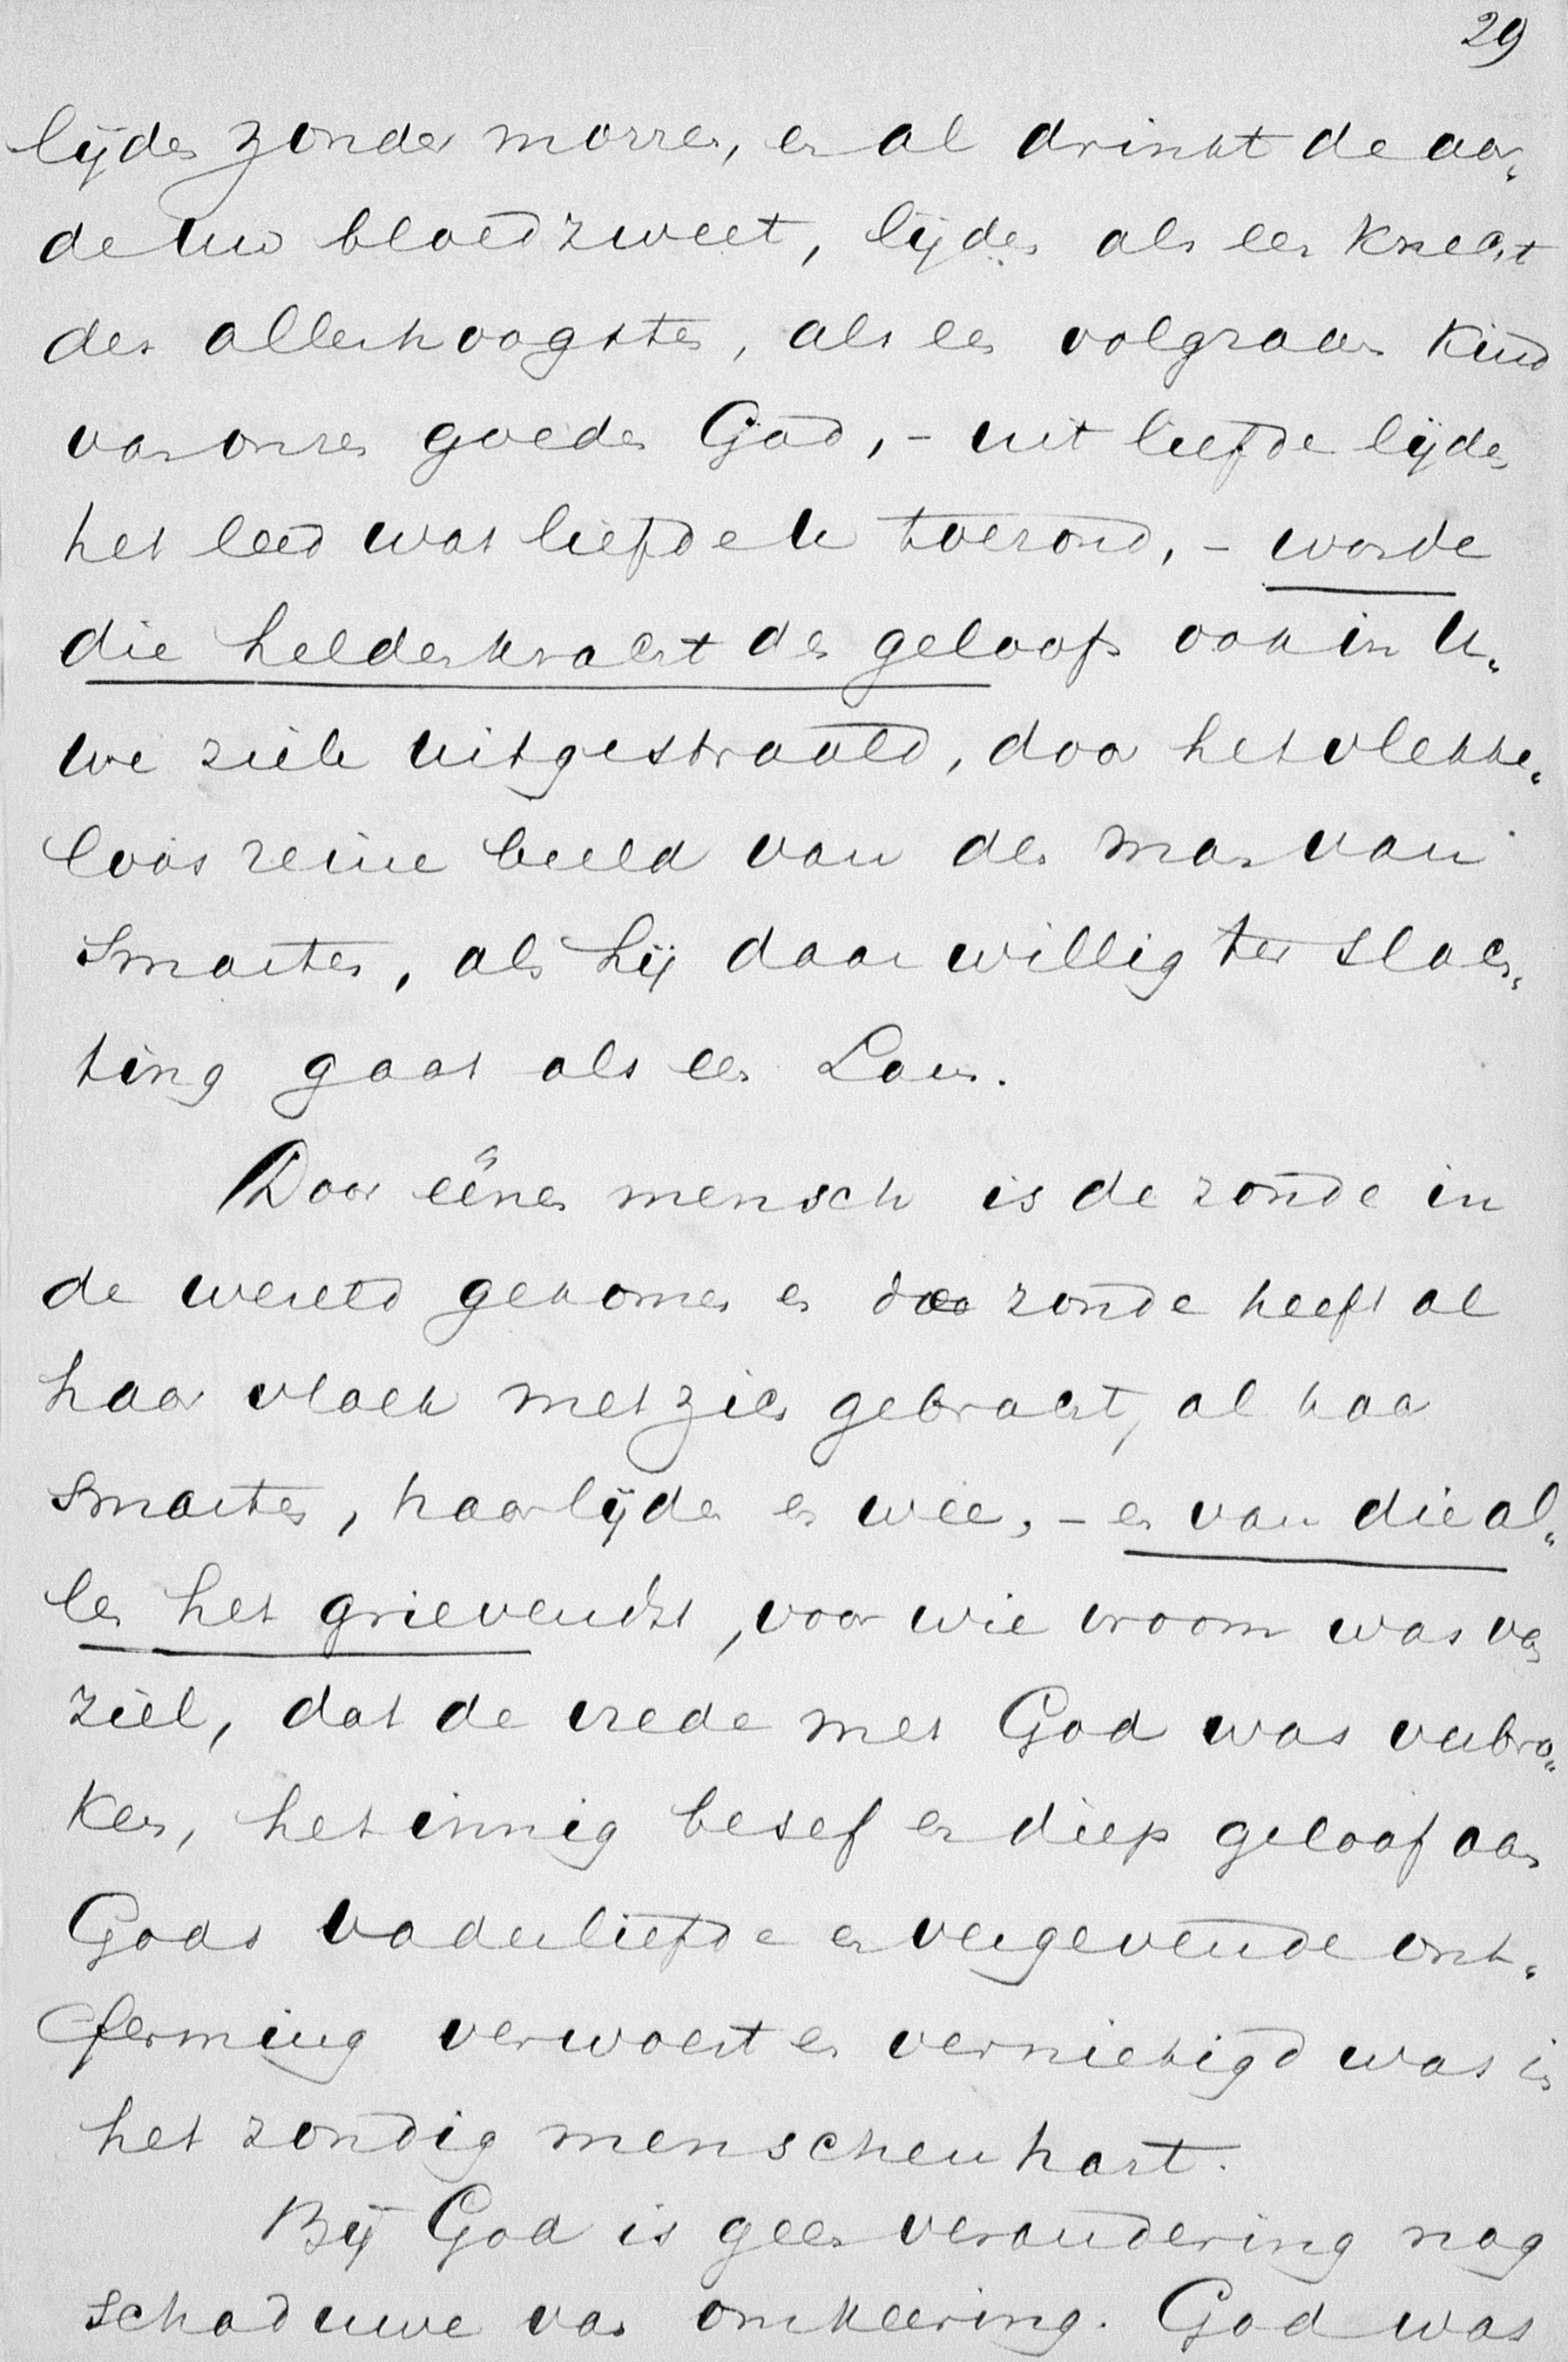 29
lijden zonder morren, en al drinkt de aar„
de uw bloedzweet, lijden als een knecht
des allerhoogsten, als een volgzaam kind
van onzen goeden God, - uit liefde lijden
het leed wat liefde u toezond, - worde
die heldenkracht des geloofs ook in u„
we ziele uitgestraald, door het vlekke„
loos reine beeld van den man van
smarten, als hij daar willig ter slach„
ting gaat als een Lam.
Door éénen mensch is de zonde in
de wereld gekomen en de zonde heeft al
haar vloek met zich gebracht, al haar
smarten, haar lijden en wee, - en van die al„
les het grievendst, voor wie vroom was van
ziel, dat de vrede met God was verbro„
ken, het innig besef en diep geloof aan
Gods vaderliefde en vergevende ont„
ferming verwoest en vernietigd was in
het zondig menschenhart.
Bij God is geen verandering nog
schaduwe van omkeering. God was